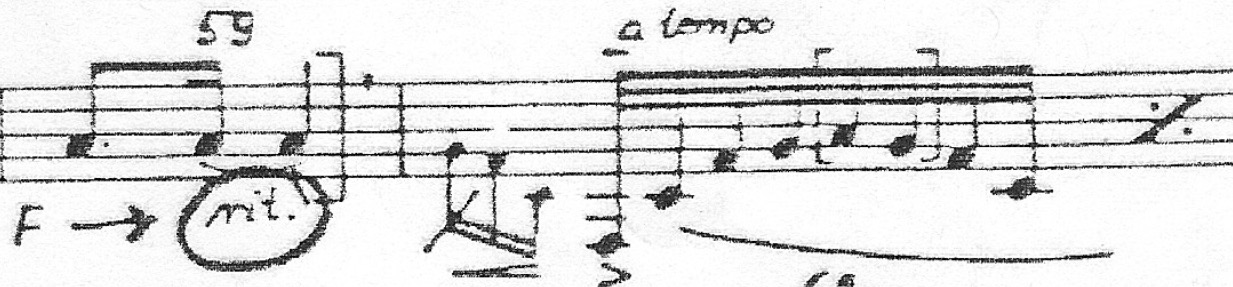 59
a tempo
F → rit.